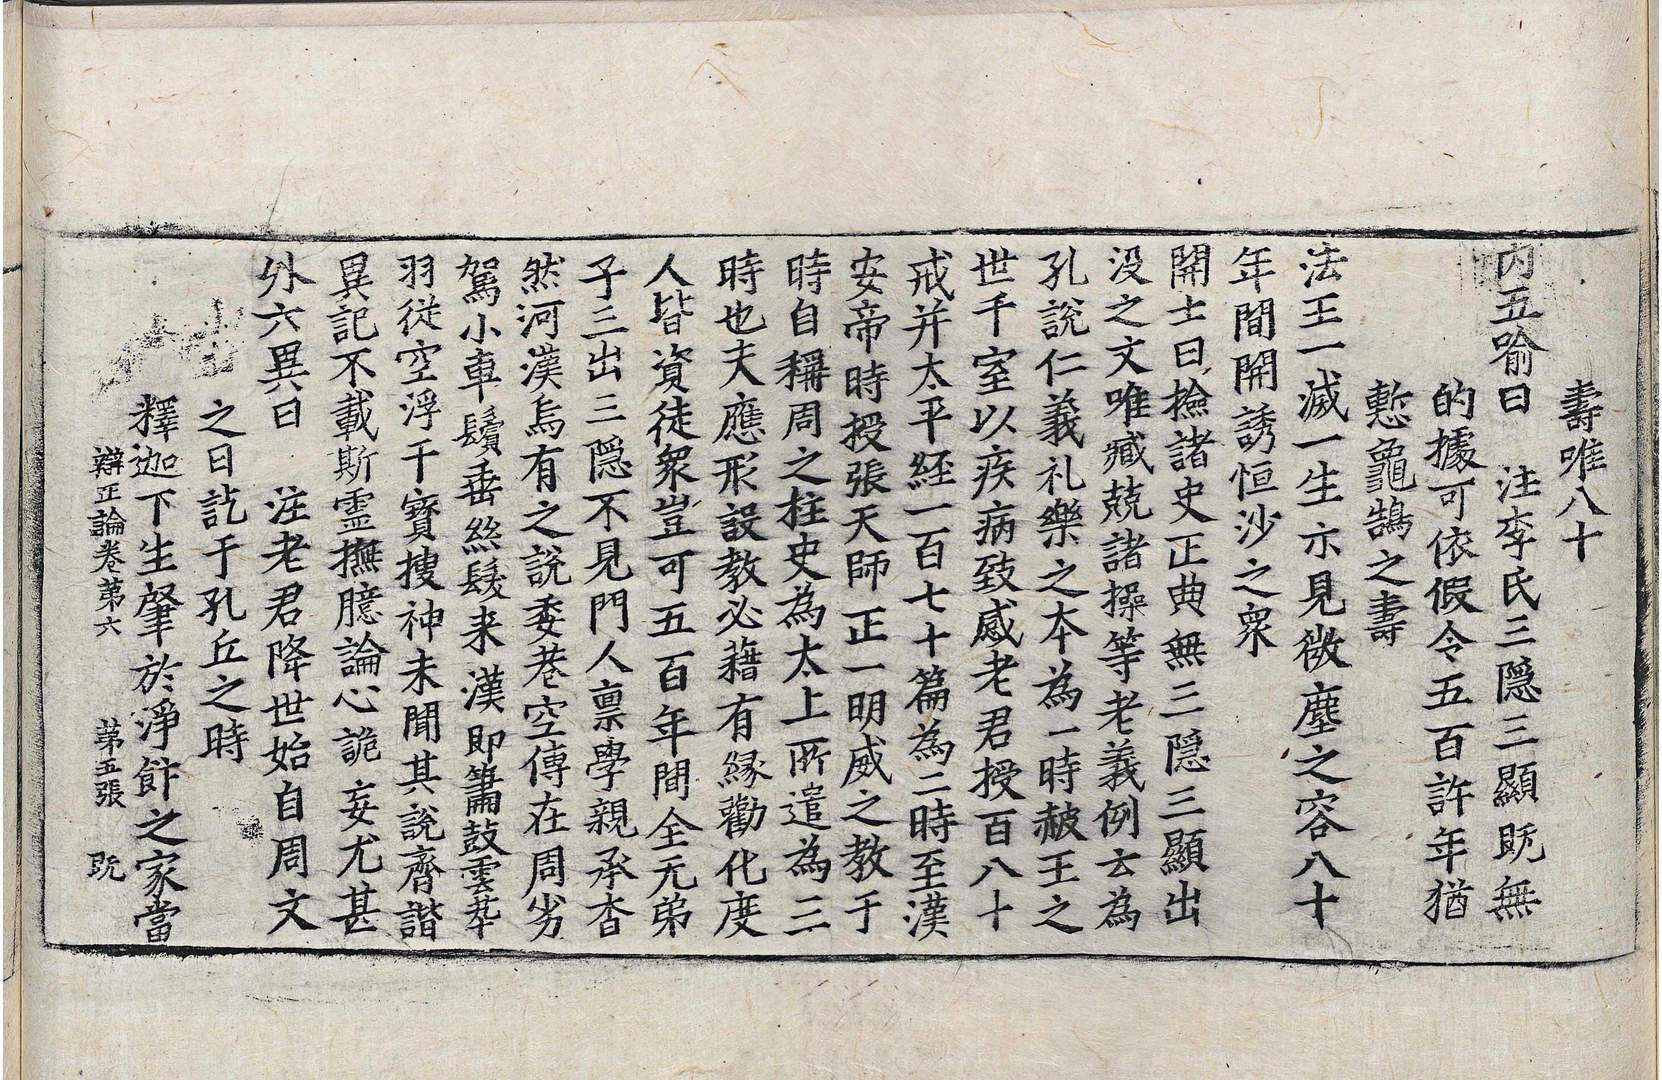 壽唯八十
内五喻曰　注李氏三隱三顯旣無
的據可依假令五百許年猶
慙龜鵠之壽
法王一滅一生示見微塵之容八十
年閒開誘恒沙之衆
開士曰撿諸史正典無三隱三顯出
没之文唯臧兢諸操等老義例云為
孔說仁義礼樂之本為一時赧王之
世千室以疾病致感老君授百八十
戒并太平経一百七十篇為二時至漢
安帝時授張天師正一明威之教于
時自稱周之柱史為太上所遣為三
時也夫應形設教必藉有緣勸化度
人皆資徒衆豈可五百年閒全无弟
子三出三隱不見門人禀學親承杳
然河漢烏有之說委巷空傳在周劣
駕小車鬢垂絲髮来漢即簫鼓雲萃
羽從空浮干寶搜神未聞其說齊諧
異記不載斯靈撫臆論心詭妄尤甚
外六異曰　注老君降世始自周文
之日訖于孔丘之時
釋迦下生肇於淨飰之家當
辯正論卷第六　第五張　旣